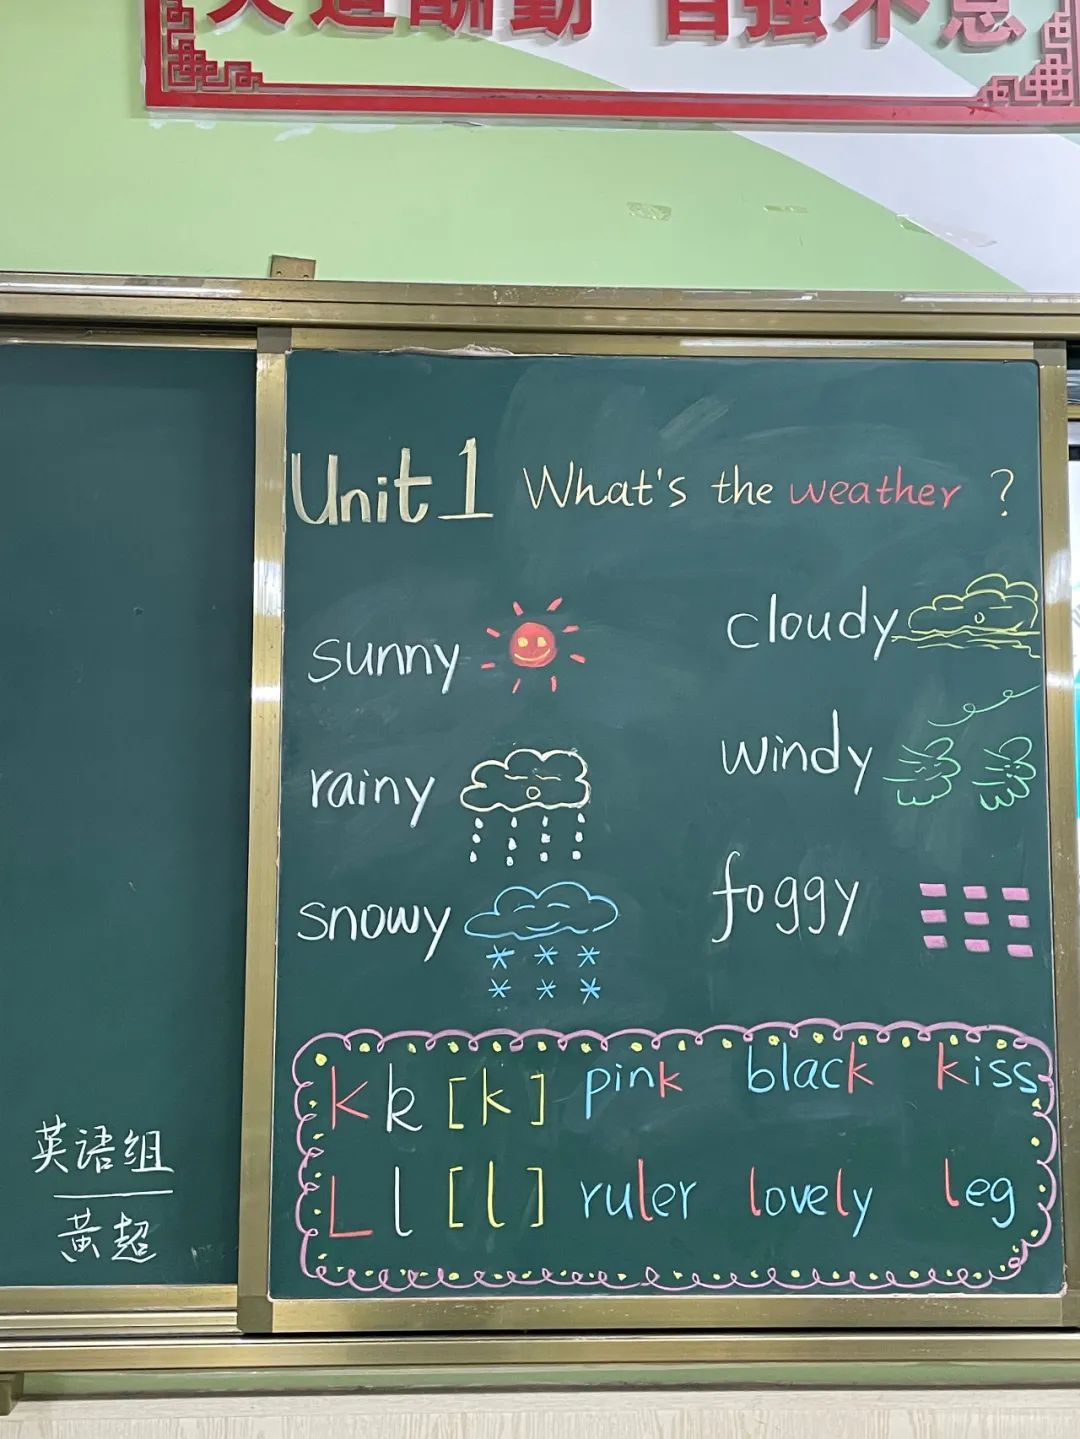 天道酬勤 自强不息
Unit 1 What's the weather ?
sunny
cloudy
rainy
windy
snowy
foggy
K k [k] pink black kiss
L l [l] ruler lovely leg
英语组
黄超